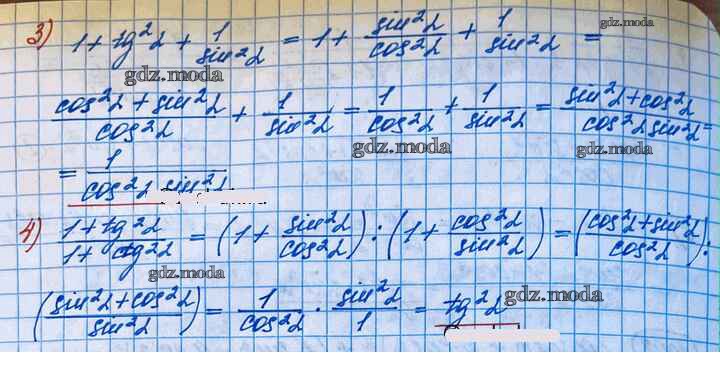 3) 1 + tg²α + 1/sin²α = 1 + sin²α/cos²α + 1/sin²α =
gdz.moda
gdz.moda
(cos²α + sin²α)/cos²α + 1/sin²α = 1/cos²α + 1/sin²α = (sin²α + cos²α)/(cos²α sin²α) =
gdz.moda
gdz.moda
= 1/(cos²α sin²α)
4) (1 + tg²α)/(1 + ctg²α) = (1 + sin²α/cos²α) : (1 + cos²α/sin²α) = ((cos²α + sin²α)/cos²α) :
gdz.moda
((sin²α + cos²α)/sin²α) = 1/cos²α · sin²α/1 = tg²α
gdz.moda